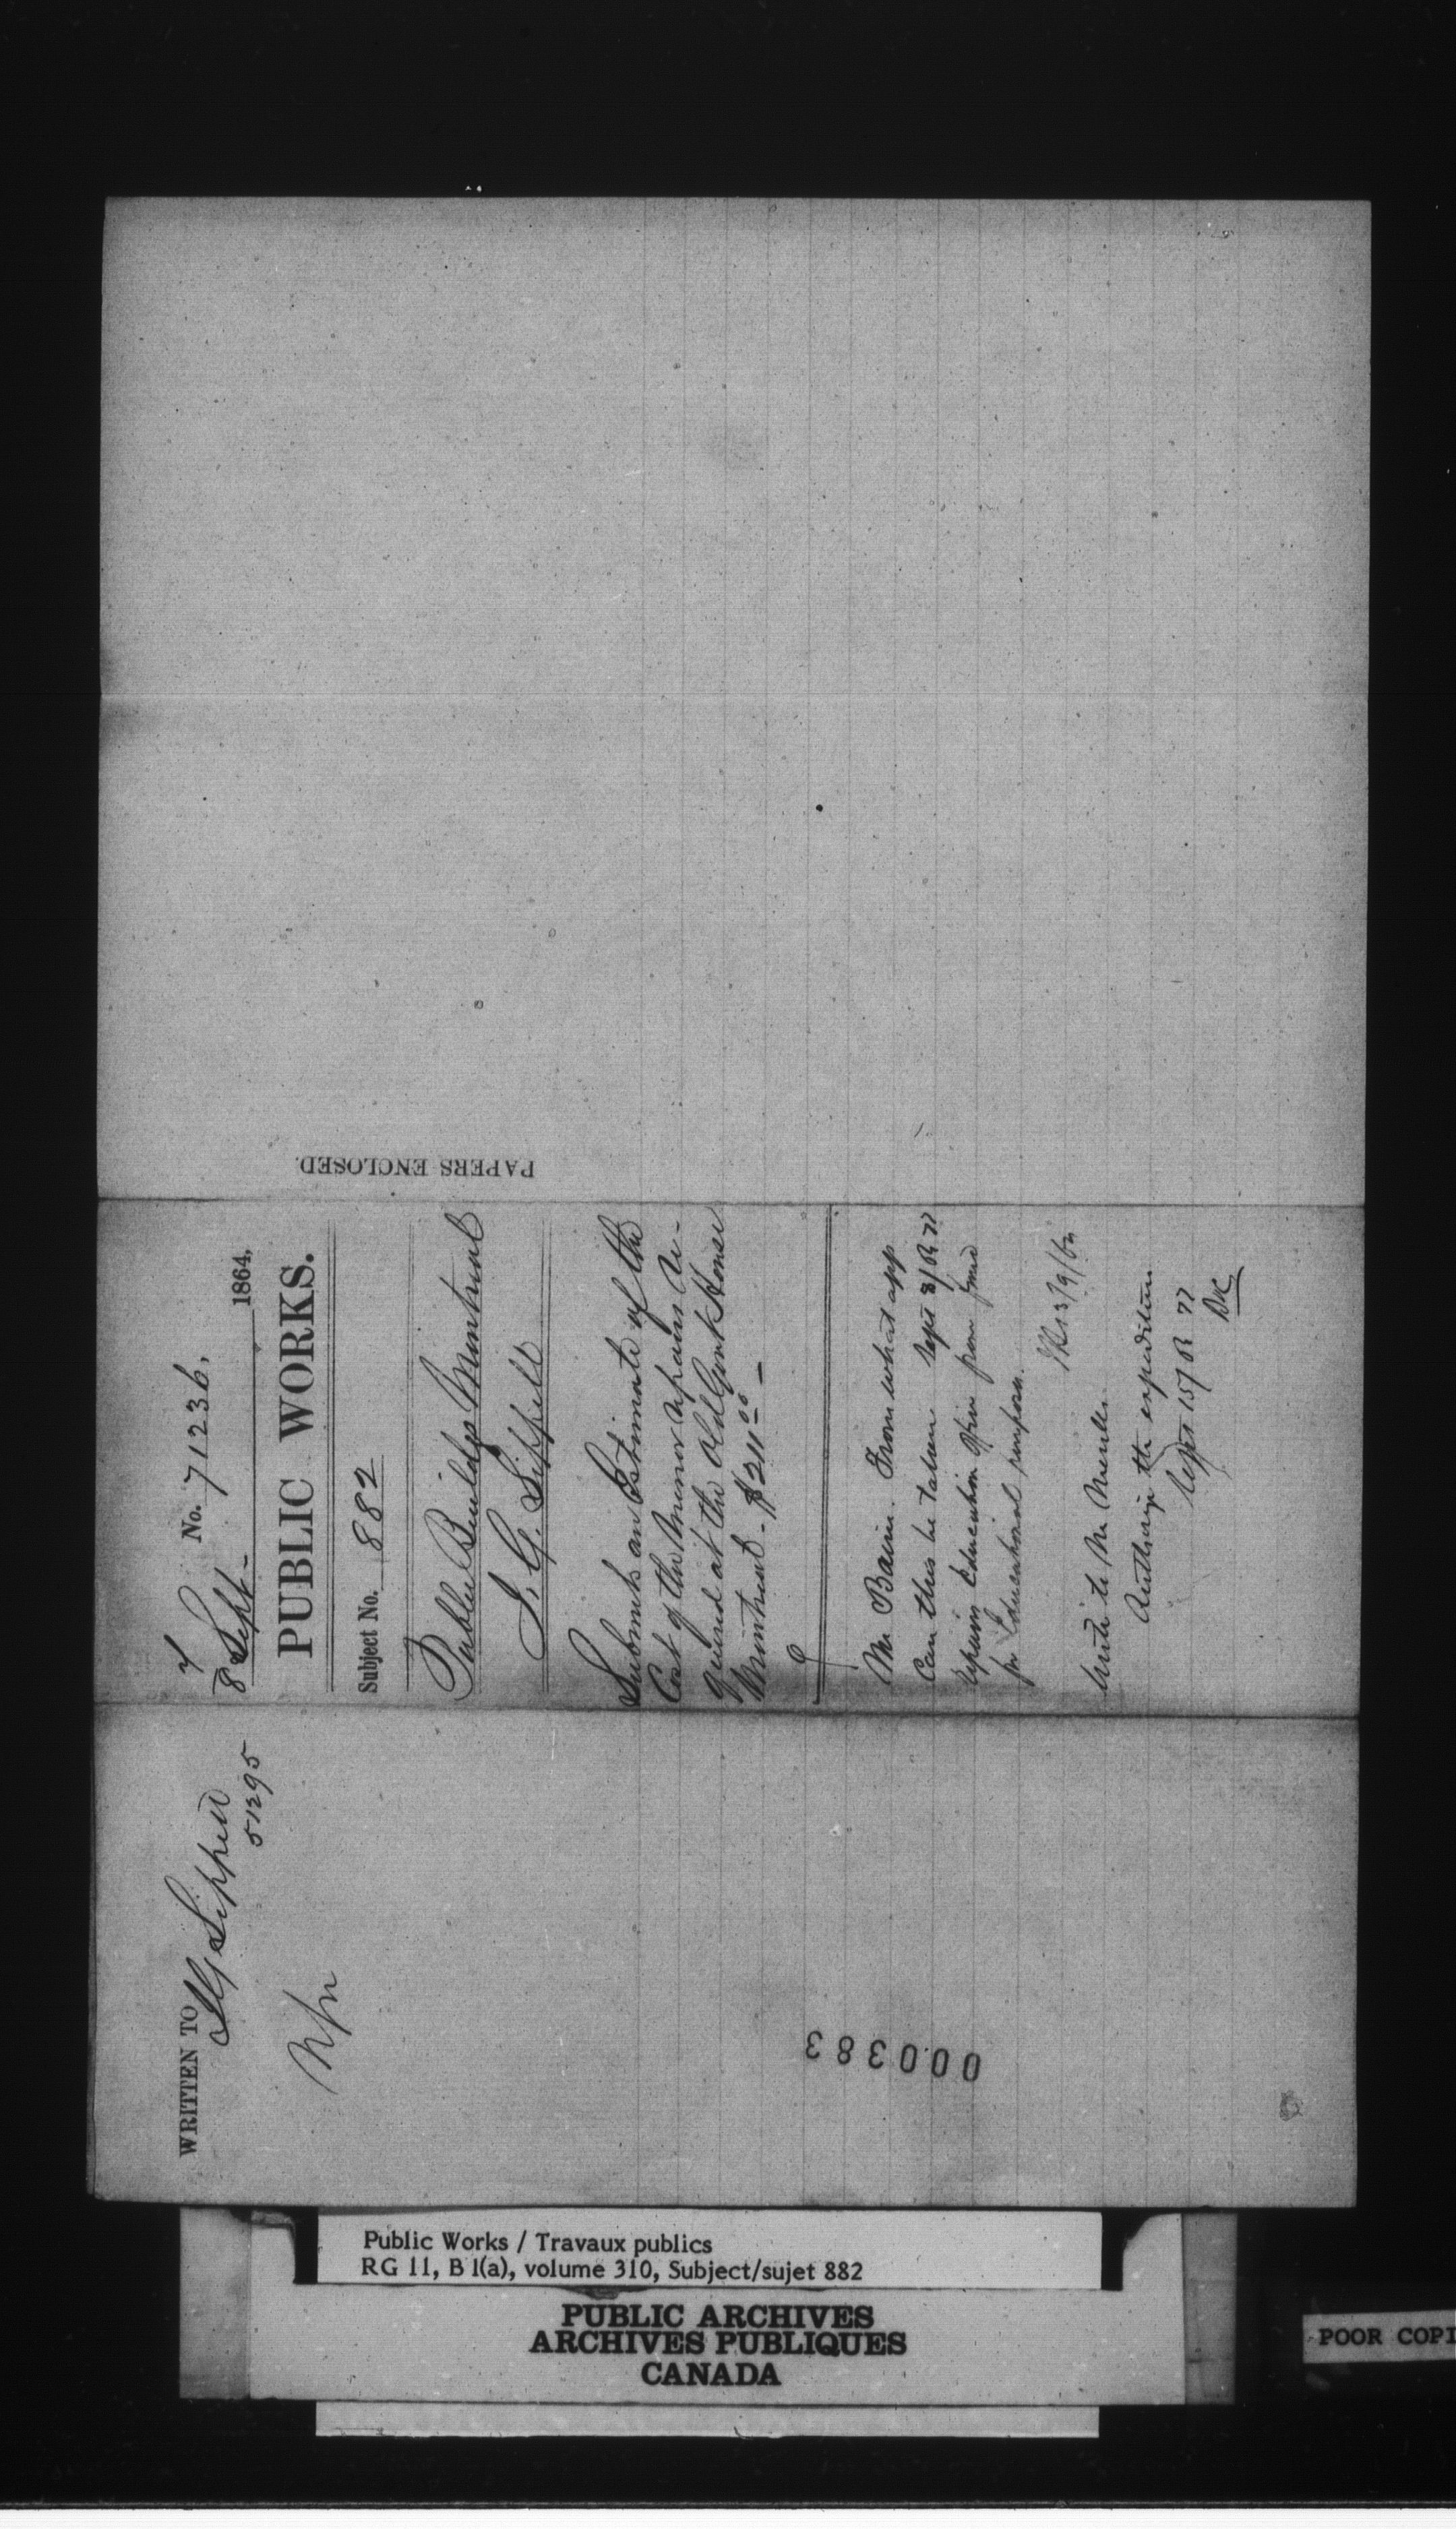 No. 71236.
8 Sept- 1864,
PUBLIC WORKS.
Subject No. 882
Public Buildgs Montreal
J. G. Sippell
Submits an Estimate of the
Cost of the minor repairs re-
quired at the Old Govt House
Montreal - $211.00 -
Mr Baine. From what app
Can this be taken Sept 8/64
Repairs Education Office from fund
for Educational purposes.
13/9/64
Write to Mr
Authorizg the expenditure
Sept 15/64
PAPERS ENCLOSED.
WRITTEN TO
J G Sippell
51295
000383
Public Works / Travaux publics
RG 11, B 1(a), volume 310, Subject/sujet 882
PUBLIC ARCHIVES
ARCHIVES PUBLIQUES
CANADA
POOR COPI